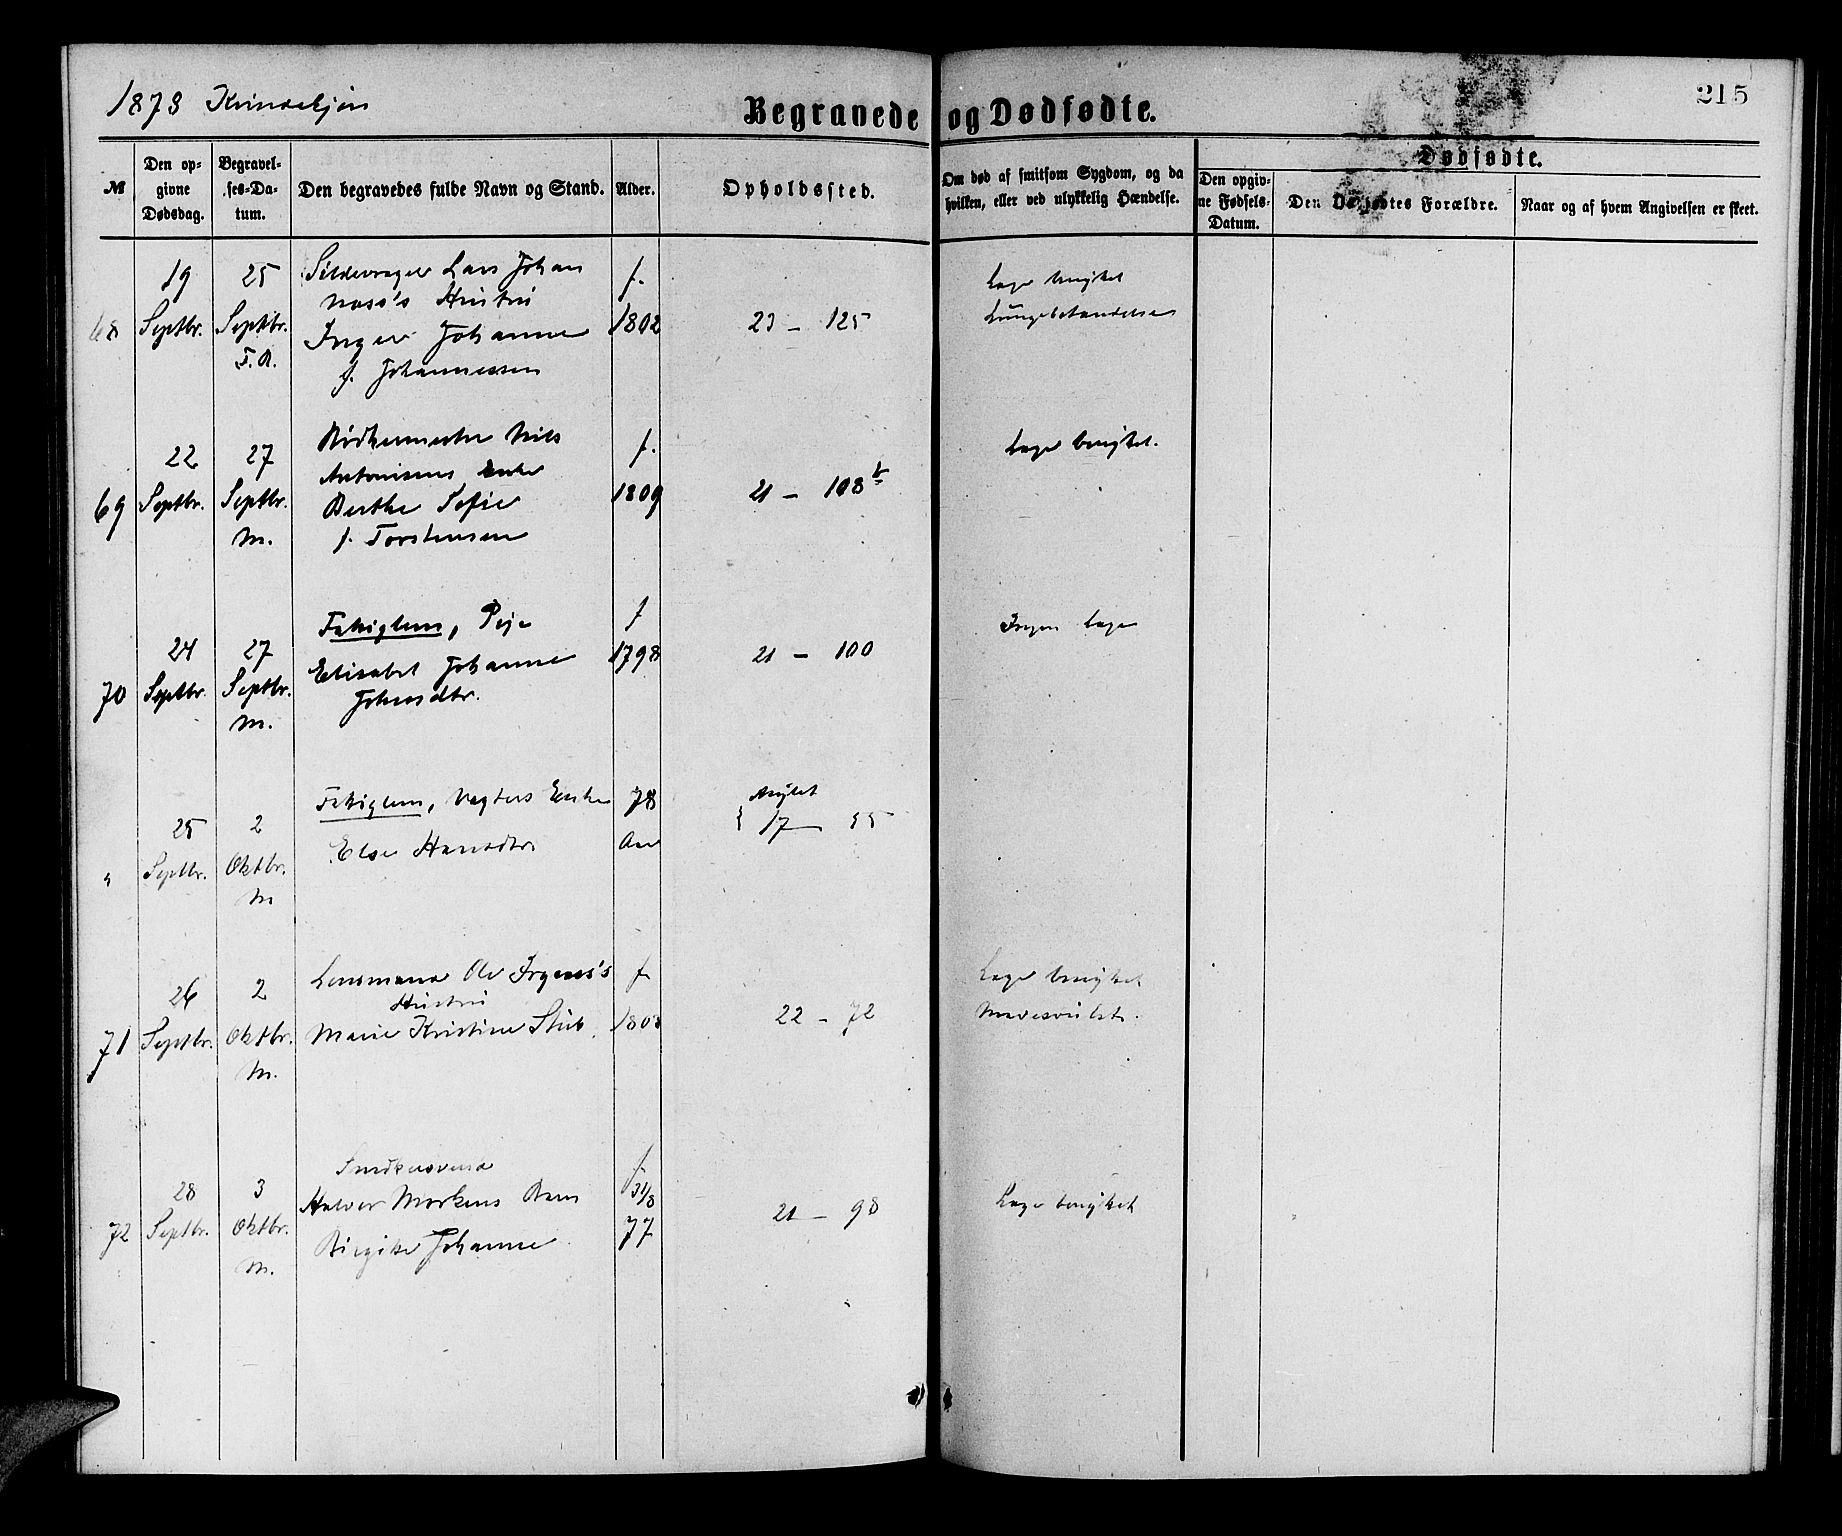 1878 Kvindekjøn
Begravede og Dødfødte.
215
Dødfødte.
№
Den opgivne Dødsdag.
Begravelses-Datum.
Den begravedes fulde Navn og Stand.
Alder.
Opholdssted.
Om død af smitsom Sygdom, og da hvilken, eller ved ulykkelig Hændelse.
Den opgivne Fødsels-Datum.
Den Dødfødtes Forældre.
Naar og af hvem Angivelsen er skeet.
68
19
Septbr.
25
Septbr.
F. A.
Lars Johan
Næss's Hustru
Inger Johanne
f. Johannessen
f.
1802
23 - 125
Læge benyttet
Lungebetændelse
69
22
Septbr.
27
Septbr.
M.
Bødkermester Nils
Antonisens Enke
Berthe Sofie
f. Torstensen
f.
1809
21 - 108 b
Læge benyttet.
70
24
Septbr.
27
Septbr.
M.
Fattiglem, Pige
Elisabet Johanne
Johnsdtr.
f
1798
21 - 100
Ingen Læge
"
25
Septbr.
2
Oktbr.
M
Fattiglem, Vægters Enke
Else Hansdtr.
78
Aar
Asylet
17 - 55
71
26
Septbr.
2
Oktbr.
M.
Lensmand Ole Irgens's
Hustru
Marie Kristine Stub.
f
1808
22 - 72
Læge benyttet
72
28
Septbr.
3
Oktbr.
M.
Snedkersvend
Halvor Markens Barn
Birgitte Johanne
f.
31/8
77
21 - 98
Læge benyttet